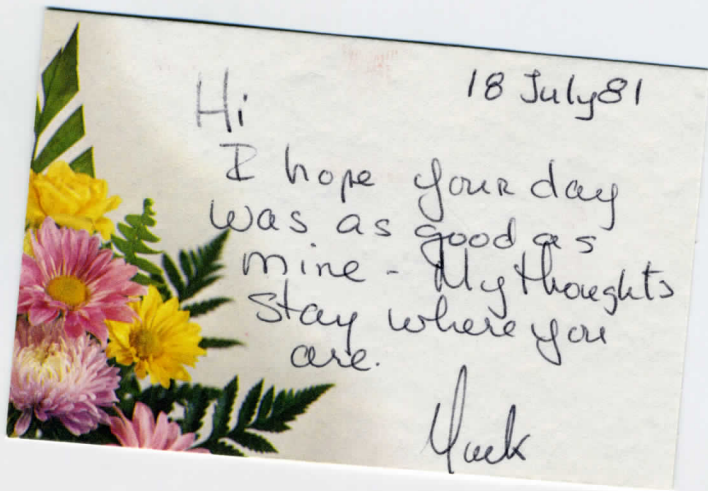 18 July 81
Hi
I hope your day
was as good as
mine - My thoughts
stay where you
are.